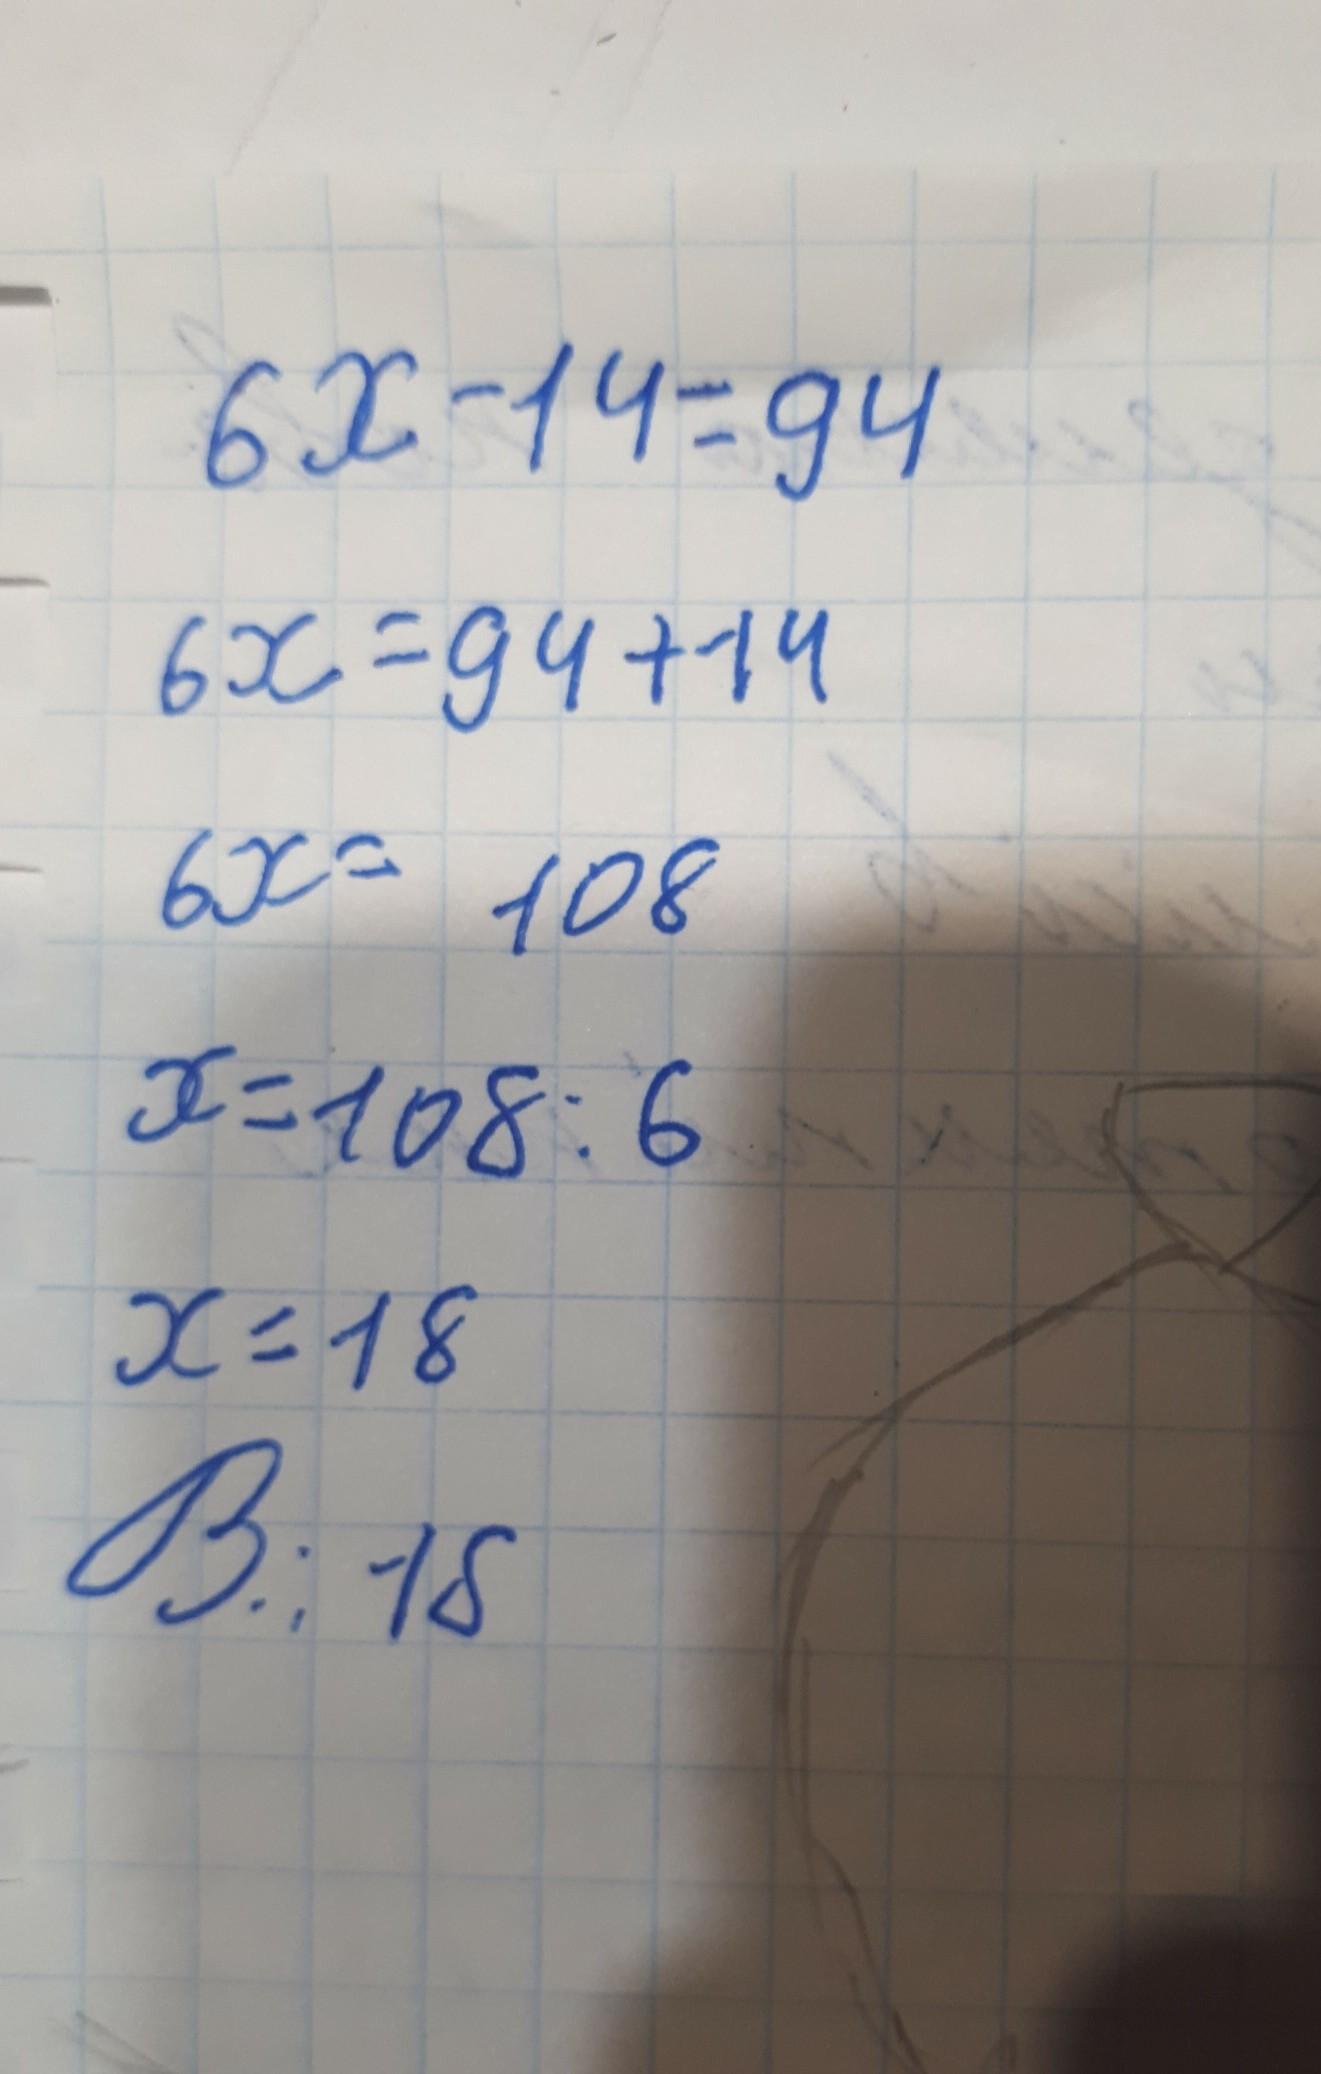 6x-14=94
6x=94+14
6x= 108
x=108:6
x=18
В.: 18